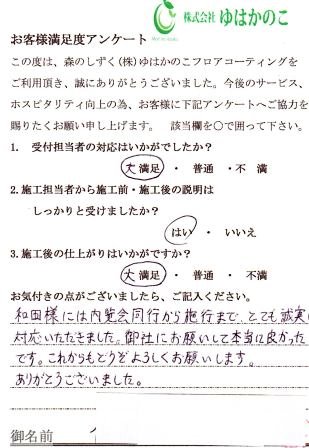 株式会社 ゆはかのこ
お客様満足度アンケート
この度は、森のしずく(株)ゆはかのこフロアコーティングを
ご利用頂き、誠にありがとうございました。今後のサービス、
ホスピタリティ向上の為、お客様に下記アンケートへご協力を
賜りたくお願い申し上げます。 該当欄を○で囲って下さい。
1. 受付担当者の対応はいかがでしたか?
大満足 ・ 普通 ・不 満
2.施工担当者から施工前・施工後の説明は
しっかりと受けましたか?
はい ・ いいえ
3.施工後の仕上がりはいかがですか?
大満足 ・ 普通 ・ 不満
お気付きの点がございましたら、ご記入ください。
和田様には内覧会同行から施行まで、とても誠実
対応いただきました。御社にお願いして本当に良かった
です。これからもどうぞよろしくお願いします。
ありがとうございました。
御名前